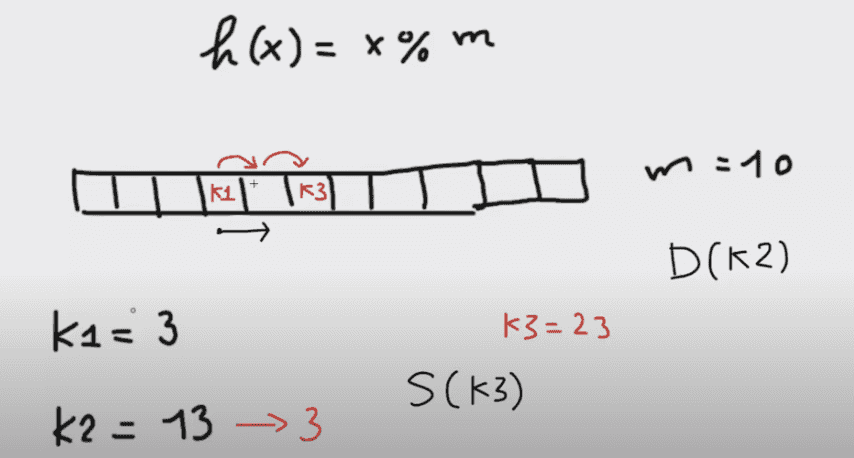 h(x) = x % m
k1 k3
m = 10
D(k2)
k1 = 3
k3 = 23
S(k3)
k2 = 13 → 3